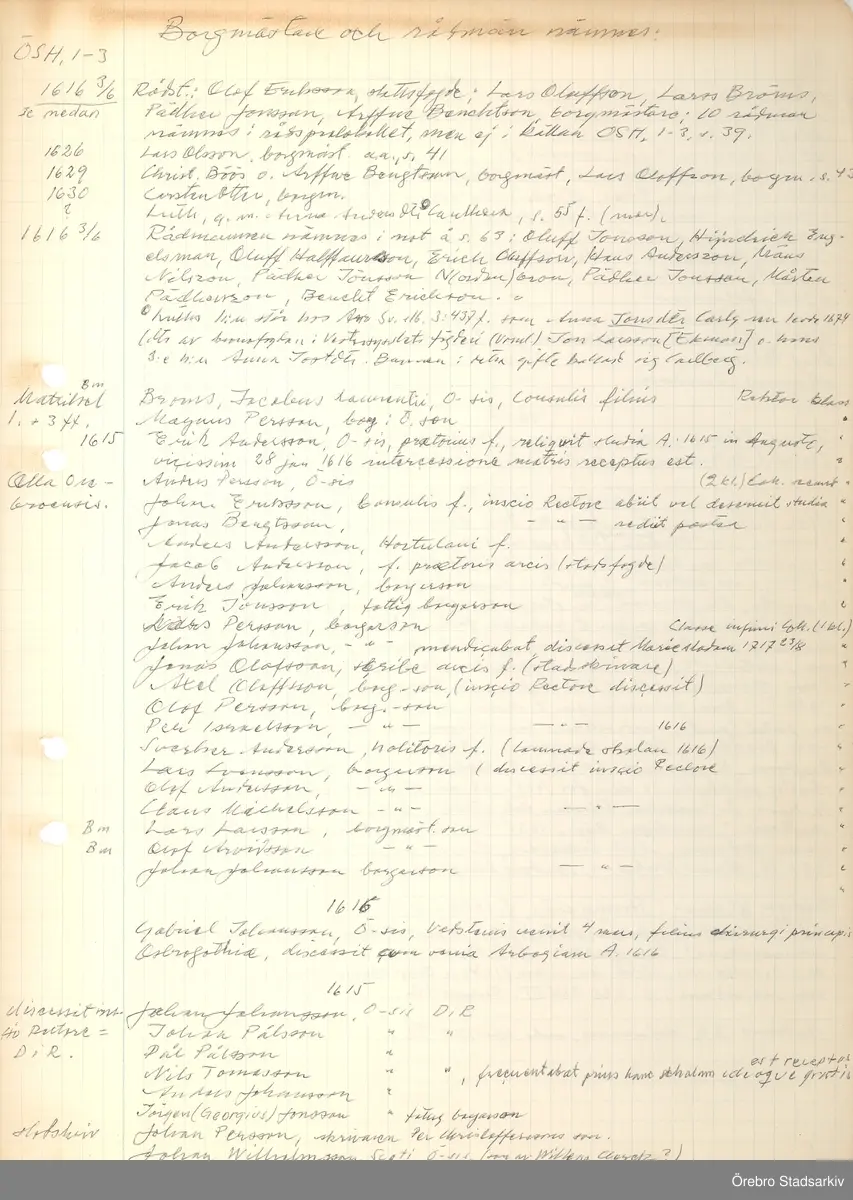 Borgmästare och rådmän nämnes:
ÖSH, 1-3
1616 3/6 Rådst.: Olof Eriksson, slottsfogde; Lars Oluffson, Larss Bröms,
se nedan Pädher Jonsson, Arffue Benchtson, borgmästare; 10 rådmän
nämnes i rådsprotokollet, men ej i källan ÖSH, 1-3, s. 39.
1626 Lars Olsson, borgmäst. a.a., s. 41
1629 Christ. Böös o. Arffue Bengtsson, borgmäst, Lars Oloffson, borgm. s. 43
1630 Carsten Otter, borgm.
? Luth, g. m. Anna Andersdtr Lauthera, s. 55 f. (mer).
1616 3/6 Rådmännen nämnes i not å s. 63: Oluff Jonsson, Hijndrich Eng-
elsman, Oluff Halffuarsson, Erich Oluffson, Hans Andersson, Måns
Nilsson, Pädher Jönsson N(orden)bron, Pädher Jonsson, Mårten
Pädhersson, Bencht Erichson.
som Anna Jonsdtr Carlg
Jon Larsson [Ekman] o. hans
3:e h:u Anna Jostdtr. Barnen i detta gifte kallade sig Carlberg.
Bm
Matrikel Broms, Jacobus Laurentii, Ö-sis, Consulis filius Rektors klass
1. + 3 ff. Magnus Persson, borg i Ö. son
1615 Erik Andersson, Ö-sis, prætoris f., reliquit studia A. 1615 in Augusto,
vicissim 28 jan 1616 intercessione matris receptus est.
Alla Öre- Anders Persson, Ö-sis (2 kl.)
broensis. Johan Eriksson, Consulis f., inscio Rectore abiit vel deseruit studia
Jonas Bengtsson, — " — rediit postea
Anders Andersson, Hortulani f.
Jacob Andersson, f. prætoris arcis (slottsfogde)
Anders Johansson, borgerson
Erik Jönsson, fattig borgerson
Lars Persson, borgerson Classe infimi (1 kl.)
Johan Johansson, - " - mendicabat, discessit 1717 23/8
Jonas Olofsson, scribe arcis f. (stadsskrivare)
Axel Oloffsson, borg.-son, (inscio Rectore discessit)
Olof Persson, borg.-son
Per Israelsson, — " — — " — 1616
Swerker Andersson, molitoris f. (lämnade skolan 1616)
Lars Svensson, borgerson (discessit inscio Rectore
Olof Andersson, — " —
Claus Michelsson - " - — " —
Bm Lars Larsson, borgmäst. son
Bm Olof Arvidsson — " —
Johan Johansson borgarson — " —
1616
Gabriel Johansson, Ö-sis, venit 4 mens, filius chirurgi principis
Ostrogothia, discessit cum venia Arbogiam A. 1616
1615
discessit ins- Johan Johansson, Ö-sis DiR
cio Rectore = Johan Pålsson " "
DiR. Pål Pålsson "
est receptus
Nils Tomasson " ", frequentabat prius hanc scholam ideoque gratis
Anders Johansson "
Jörgen (Georgius) Jonsson " fattig borgerson
slottsskriv Johan Persson, skrivaren Per Christofferssons son.
Johan Wilhelmsson Scoti Ö-sis
Örebro Stadsarkiv